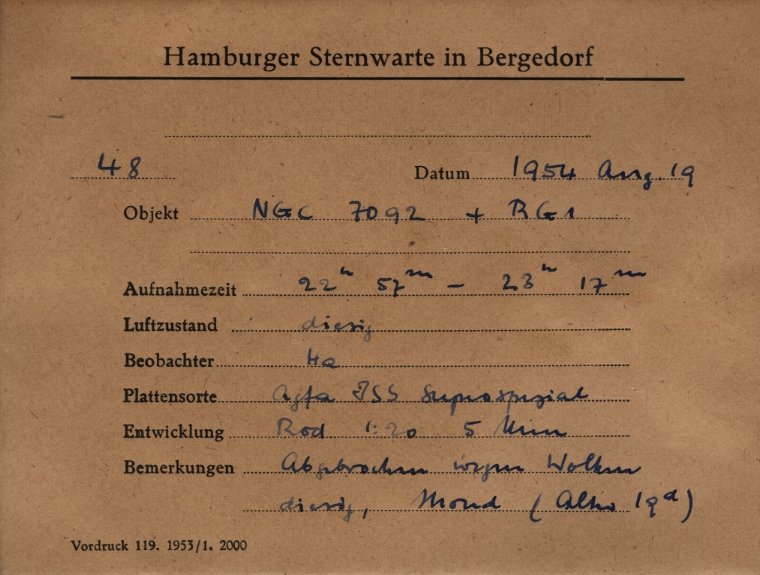 Hamburger Sternwarte in Bergedorf
48 Datum 1954 Aug. 19
Objekt NGC 7092 + RG1
Aufnahmezeit 22h 57m – 23h 17m
Luftzustand diesig
Beobachter Ha
Plattensorte Agfa ISS
Entwicklung Rod 1:20 5 Min
Bemerkungen Abgebrochen wegen Wolken
diesig, Mond (Alter 19d)
Vordruck 119. 1953/1. 2000